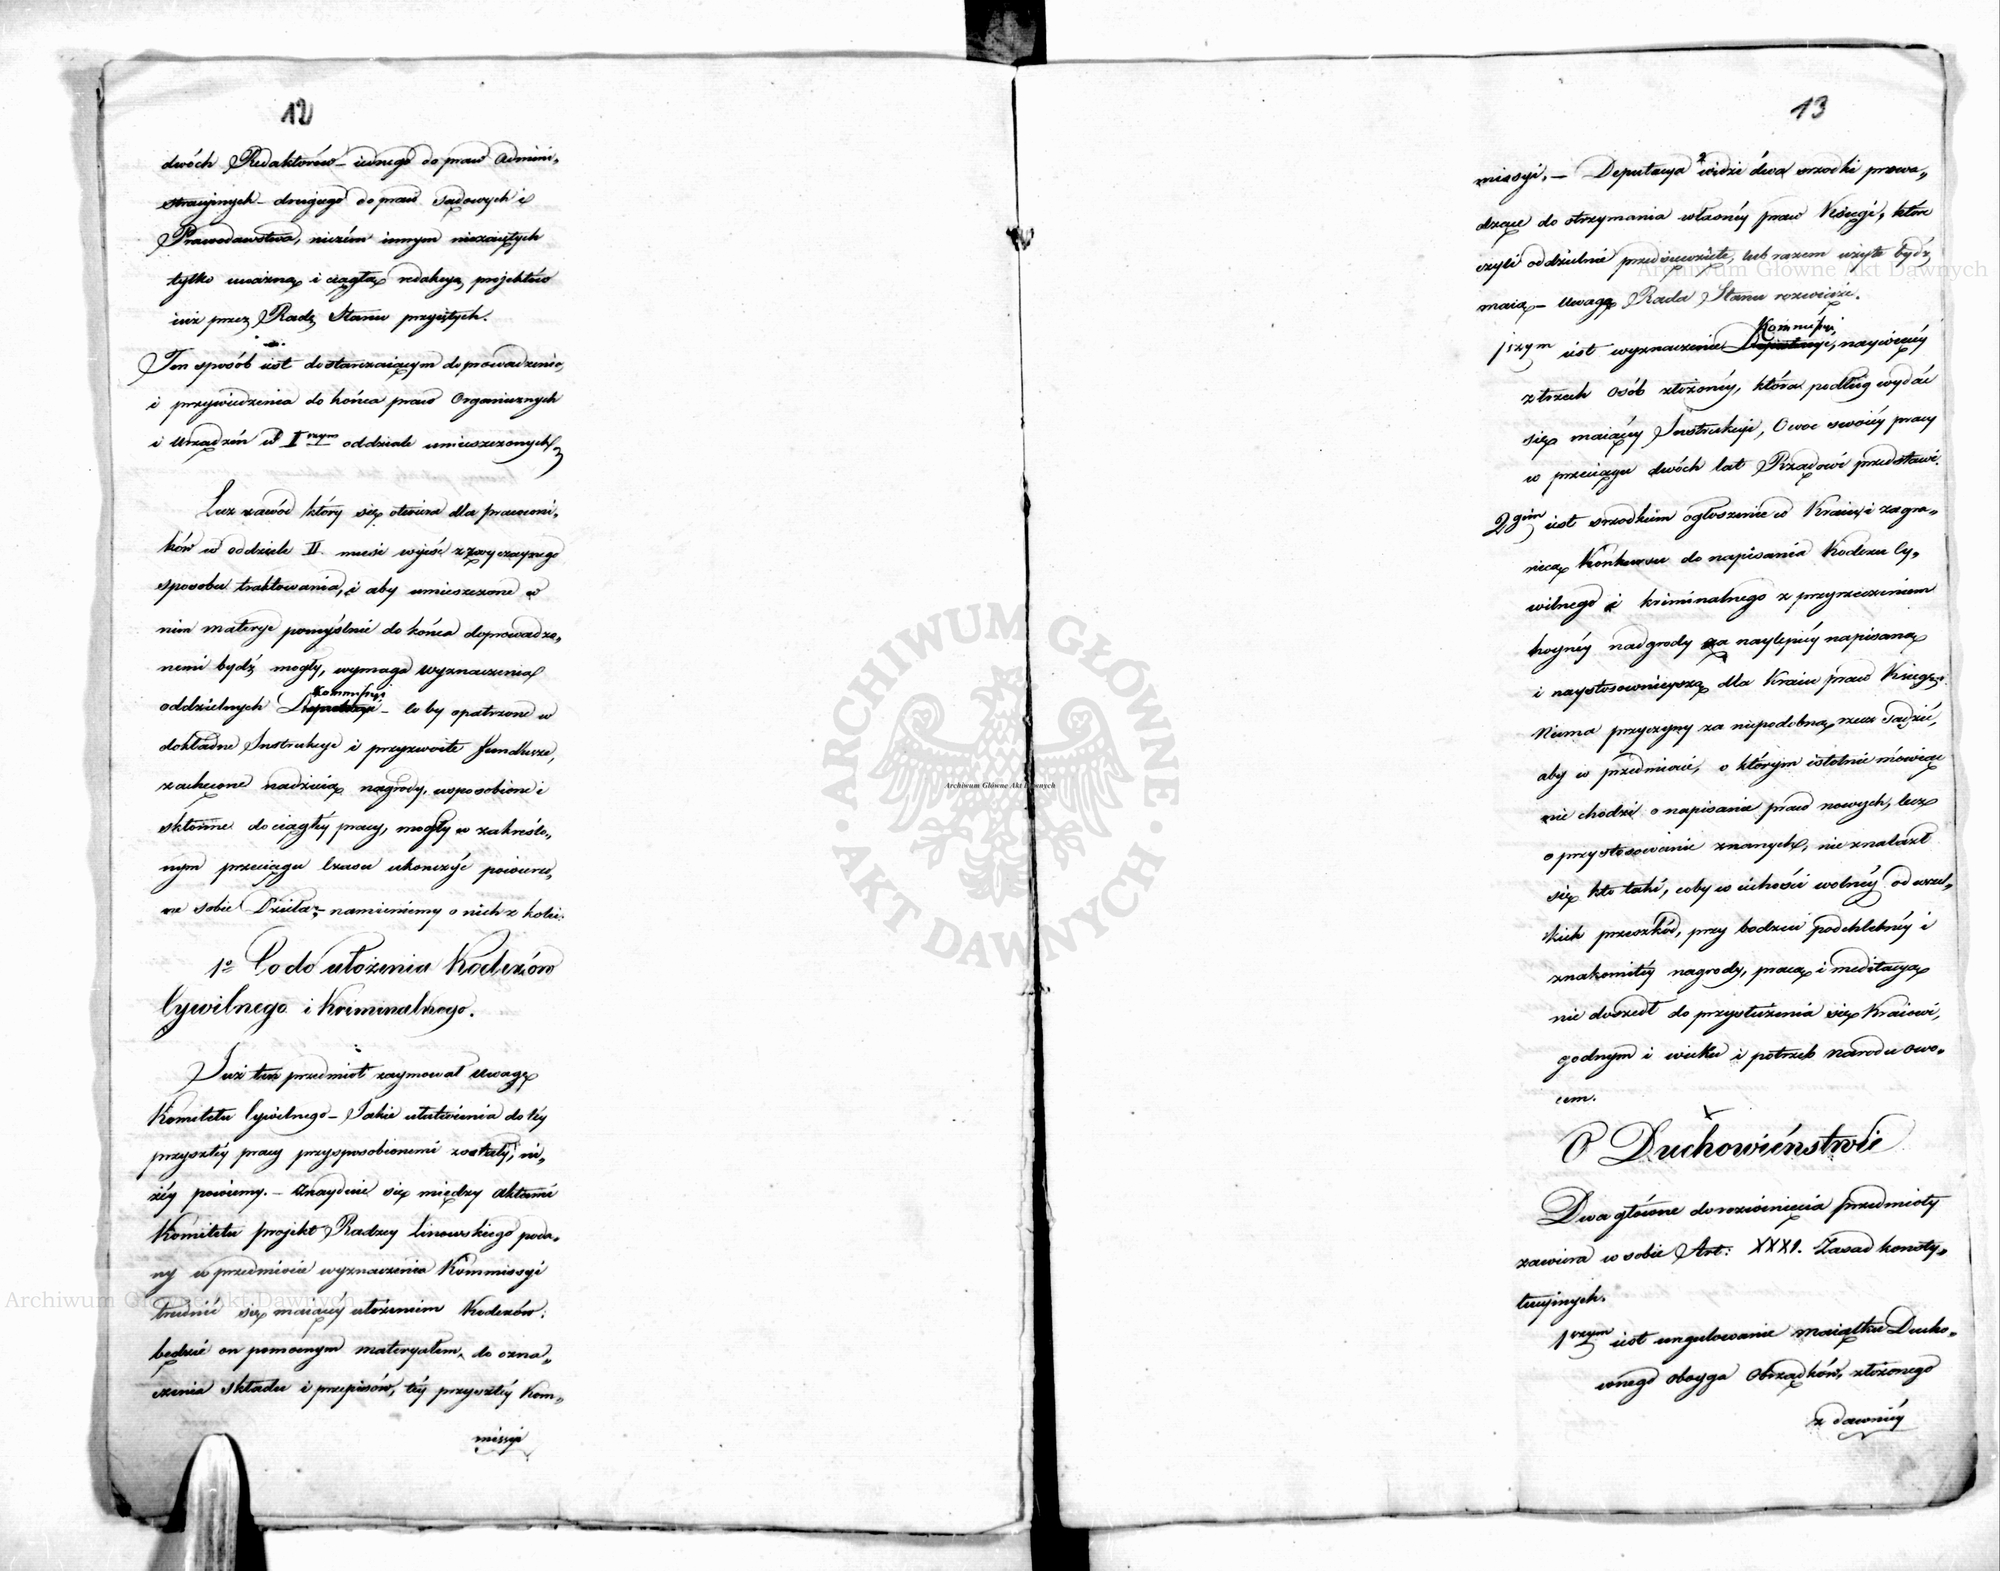 12
dwóch Redaktorów – iednego do praw Admini„
stracyinych – drugiego do praw Sądowych i
Prawodawstwa, niczém innym niezaiętych
tylko uważną i ciągłą redakcyą projektów
iuż przez Radę Stanu przyiętych.
Ten sposób iest dostarczaiącym do prowadzenia
i przywiedzenia do końca praw Organicznych
i Urządzeń w I szym oddziale umieszczonych
Lecz zawód który się otwiera dla pracowni„
ków w oddziele II. musi wyiść z zwyczaynego
sposobu traktowania, i aby umieszczone w
nim materye pomyślnie do końca doprowadzo„
nemi bydź mogły, wymaga wyznaczenia
Kommissyi
oddzielnych Deputacyi – coby opatrzone w
dokładne Instrukcye i przyzwoite fundusze,
zachęcone nadzieią nagrody, usposobione i
skłonne do ciągłéy pracy, mogły w zakreślo„
nym przeciągu czasu ukończyć powierzo„
ne sobie Dzieła – namieniemy o nich z kolei.
1o Co do ułożenia Kodexów
Cywilnego i Kriminalnego.
Już ten przedmiot zaymował uwagę
Komitetu Cywilnego – Jakie ułatwienia do téy
przyszłéy pracy przysposobionemi zostały, ni„
żéy powiemy. – Znayduie się między aktami
Komitetu projekt Radzcy Linowskiego poda„
ny w przedmiocie wyznaczenia Kommissyi
trudnić się maiącéy ułożeniem Kodexów.
będzie on pomocnym materyałem, do ozna„
czenia składu i przepisów, téy przyszłéy Kom„
missyi
13
missyi. – Deputacya widzi dwa srzodki prowa„
dzące do otrzymania własnéy praw Xsięgi, które
czyli oddzielnie przedsięwzięte, lub razem użyte bydź
maią – uwagę Rada Stanu rozwiąże.
Kommissyi
1szym iest wyznaczenie Deputacyi, naywięcéy
z trzech Osób złożonéy, która podług wydać
się maiącéy Instrukcyi, Owoc swoiéy pracy
w przeciągu dwóch lat Rządowi przedstawi.
2gim iest srzodkiem ogłoszenie w Kraiu i zagra„
nicą Konkursu do napisania Kodexu Cy„
wilnego i kriminalnego z przyrzeczeniem
hoynéy nadgrody za naylepiéy napisaną
i naystosownieyszą dla Kraiu praw Xsięgę.
Niema przyczyny za niepodobną rzecz sądzić,
aby w przedmiocie, o którym istotnie mówiąc
nie chodzi o napisanie praw nowych, lecz
o przystosowanie znanych, nie znalazł
się kto taki, coby w cichości wolnéy od wszel„
kich przeszkód, przy bodzcu podchlebnéy i
znakomitéy nagrody, pracą i meditacyą
nie doszedł do przysłużenia się Kraiowi,
godnym i wieku i potrzeb narodu owo„
cem.
O Duchowieństwie
Dwa główne do rozwinięcia przedmioty
zawiera w sobie Art: XXXI. Zasad konsty„
tucyinych.
1szym iest uregulowanie maiątku Ducho„
wnego oboyga Obrządków, złożonego
z dawnéy
Archiwum Główne Akt Dawnych
Archiwum Główne Akt Dawnych
Archiwum Główne Akt Dawnych
ARCHIWUM GŁÓWNE · AKT DAWNYCH ·